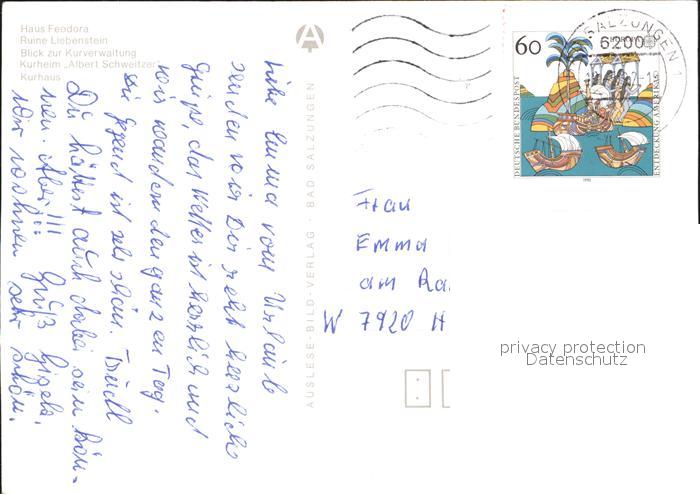 Haus Feodora
Ruine Liebenstein
Blick zur Kurverwaltung
Kurheim „Albert Schweitzer"
Kurhaus
Liebe Emma vom Urlaub
senden wir Dir recht herzliche
Grüße, das Wetter ist herrlich und
wir wandern den ganzen Tag.
die Gegend ist sehr schön.
Du hättest auch dabei sein kön-
nen. Aber!!! Grüß Gisela.
Wir wohnen sehr schön.
AUSLESE-BILD-VERLAG · BAD SALZUNGEN
Frau
Emma
am Ra
W 7920 H
60
DEUTSCHE BUNDESPOST
ENTDECKUNG AMERIKAS
SALZUNGEN 1
6200
privacy protection
Datenschutz